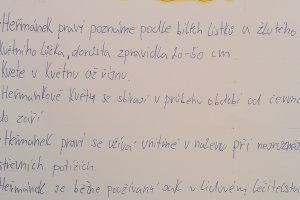 Heřmánek pravý poznáme podle bílích lístků a žlutého
květního lůžka, dorůstá zpravidla 20-50 cm.
Kvete v květnu až říjnu.
Heřmánkové květy se sbírají v průběhu období od června
do září
Heřmánek pravý se užívá vnitřně v nálevu při
střevních potížích.
Heřmánek se běžně používaná jak v lidovém léčitelství